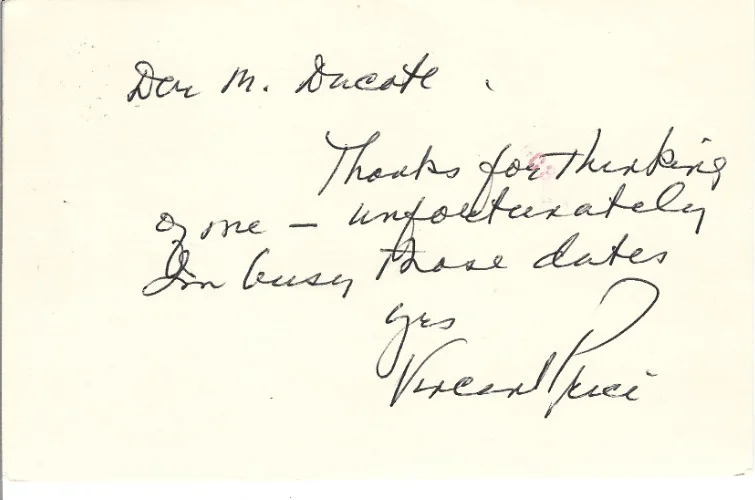 Dear M. Ducote
Thanks for thinking
of me — unfortunately
I'm busy those dates
yrs
Vincent Price